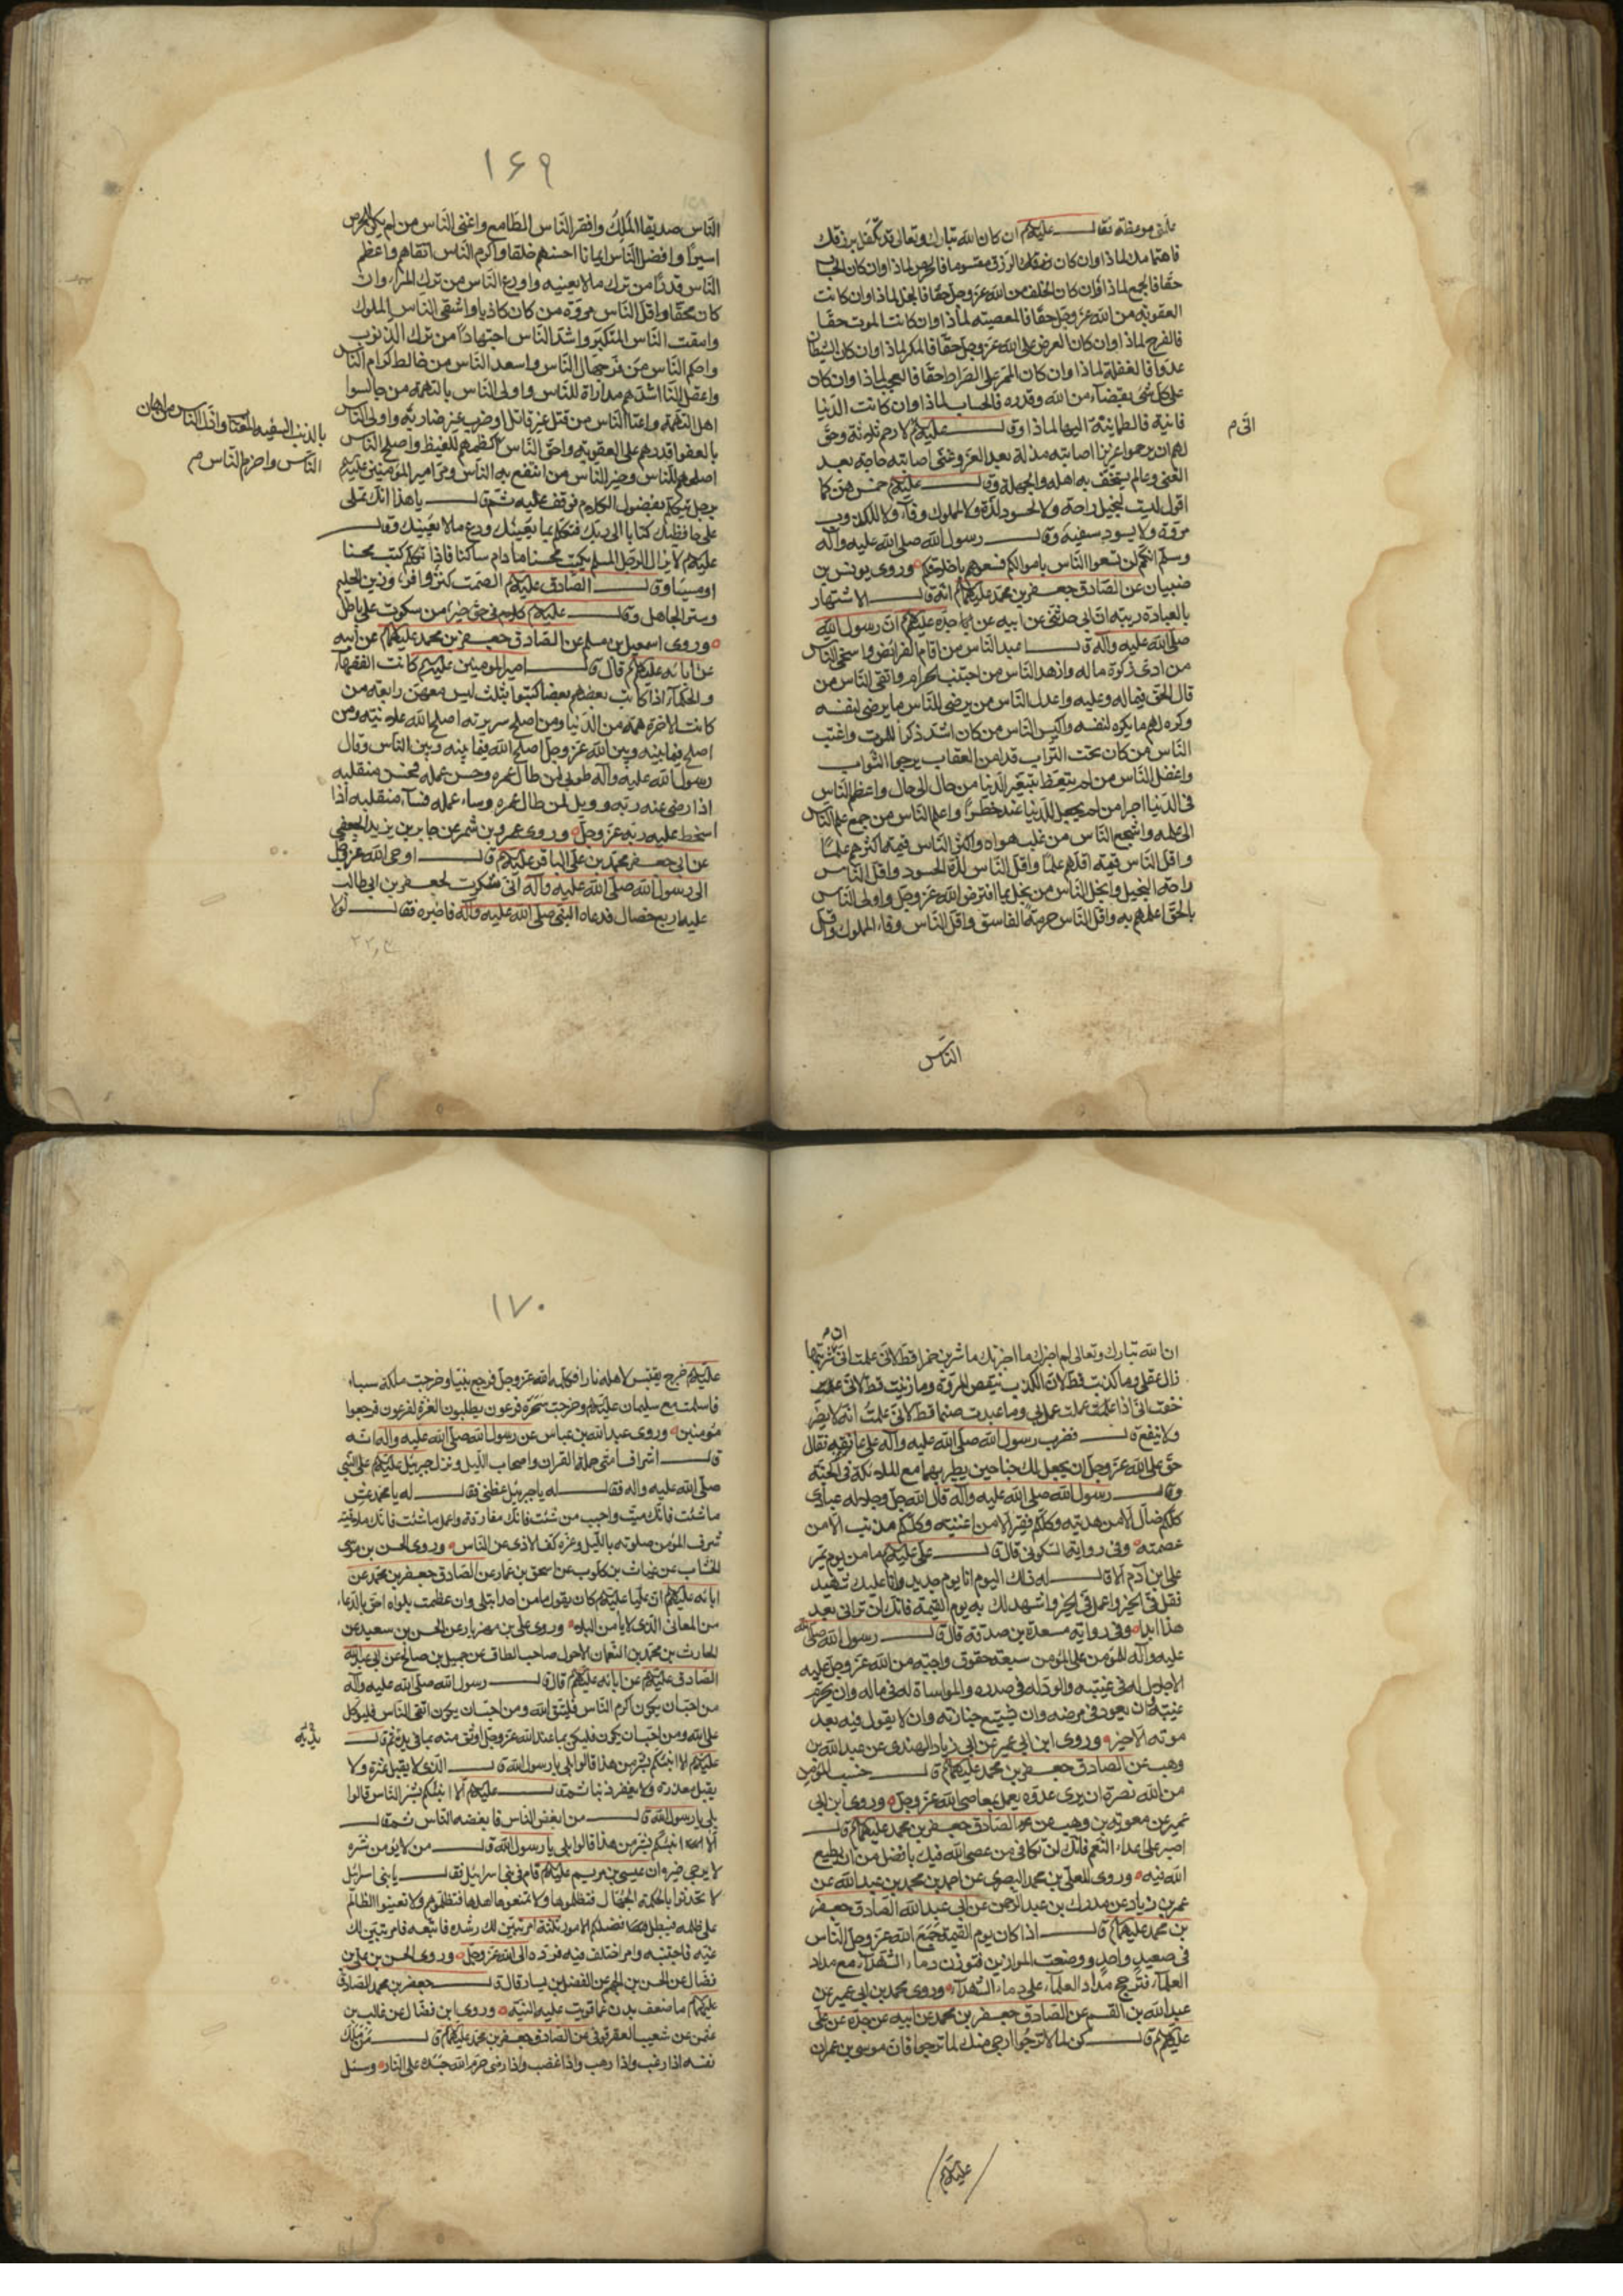 علمني موعظة فقال عليه السلام ان كان الله تبارك وتعالى قد تكفل برزقك
فاهتمامك لماذا وان كان الرزق مقسوما فالحرص لماذا وان كان الحساب
حقا فالجمع لماذا وان كان الخلف من الله عز وجل حقا فالبخل لماذا وان كانت
العقوبة من الله عز وجل حقا فالمعصية لماذا وان كانت الموت حقا
فالفرح لماذا وان كان العرض على الله عز وجل حقا فالمكر لماذا وان كان الشيطان
عدوا فالغفلة لماذا وان كان الممر على الصراط حقا فالعجب لماذا وان كان
كل شئ بقضاء من الله وقدره فالحساب لماذا وان كانت الدنيا
فانية فالطمانينة اليها لماذا وقال عليه السلام لارحم ثلثة وحق
انى م
لهم ان يرحموا عزيز اصابته مذلة بعد العز وغنى اصابته حاجة بعد
الغنى وعالم يستخف به اهله والجهلة وقال عليه السلام خمس هن كما
اقول ليست لبخيل راحة ولا لحسود لذة ولا لملوك وفاء ولا لكذوب
مروة ولا يسود سفيه وقال رسول الله صلى الله عليه وآله
وسلم انكم لن تسعوا الناس باموالكم فسعوهم باخلاقكم وروى يونس بن
ظبيان عن الصادق جعفر بن محمد عليهما السلام انه قال الاشتهار
بالعبادة ريبة ان ابى حدثنى عن ابيه عن جده عليهم السلام ان رسول الله
صلى الله عليه وآله قال اعبد الناس من اقام الفرائض واسخى الناس
من ادى زكوة ماله وازهد الناس من اجتنب الحرام واتقى الناس من
قال الحق فيما له وعليه واعدل الناس من يرضى للناس ما يرضى لنفسه
وكره لهم ما يكره لنفسه واكيس الناس من كان اشد ذكرا للموت واغبط
الناس من كان تحت التراب قد امن العقاب يرجو الثواب
واغفل الناس من لم يتعظ بتغير الدنيا من حال الى حال واعظم الناس
فى الدنيا اجرا من لم يجعل للدنيا عنده خطرا واعلم الناس من جمع علم الناس
الى علمه واشجع الناس من غلب هواه واكثر الناس قيمة اكثرهم علما
واقل الناس قيمة اقلهم علما واقل الناس لذة الحسود واقل الناس
راحة البخيل وابخل الناس من بخل بما افترض الله عز وجل واولى الناس
بالحق اعلمهم به واقل الناس حرمة الفاسق واقل الناس وفاء المملوك واقل
الناس
١٦٩
الناس صديقا الملك وافقر الناس الطامع واغنى الناس من لم يكن للحرص
اسيرا وافضل الناس ايمانا احسنهم خلقا واكرم الناس اتقاهم واعظم
الناس قدرا من ترك مالا يعنيه واورع الناس من ترك المراء وان
كان محقا واقل الناس مروة من كان كاذبا واشقى الناس الملوك
وامقت الناس المتكبر واشد الناس اجتهادا من ترك الذنوب
واحكم الناس من فر من جهال الناس واسعد الناس من خالط كرام الناس
واعقل الناس اشدهم مداراة للناس واولى الناس بالتهمة من جالس
اهل التهمة واعتا الناس من قتل غير قاتله او ضرب غير ضاربه واولى الناس
بالعفو اقدرهم على العقوبة واحق الناس
بالذنب السفيه المغتاب واذل الناس من اهان
الناس واحزم الناس م
اكظمهم للغيظ واصلح الناس
اصلحهم للناس وخير الناس من انتفع به الناس ومر امير المؤمنين عليه السلام
برجل يتكلم بفضول الكلام فوقف عليه ثم قال يا هذا انك تملى
على حافظيك كتابا الى ربك فتكلم بما يعنيك ودع مالا يعنيك وقال
عليه السلام لا يزال الرجل المسلم يكتب محسنا ما دام ساكتا فاذا تكلم كتب محسنا
او مسيئا وقال الصادق عليه السلام الصمت كنز وافر وزين الحليم
وستر الجاهل وقال عليه السلام كلام فى حق خير من سكوت على باطل
وروى اسمعيل بن مسلم عن الصادق جعفر بن محمد عليهما السلام عن ابيه
عن آبائه عليهم السلام قال قال امير المومنين عليه السلام كانت الفقهاء
والحكماء اذا كاتب بعضهم بعضا كتبوا بثلث ليس معهن رابعة من
كانت الآخرة همه من الدنيا ومن اصلح سريرته اصلح الله علانيته ومن
اصلح فيما بينه وبين الله عز وجل اصلح الله فيما بينه وبين الناس وقال
رسول الله صلى الله عليه وآله طوبى لمن طال عمره وحسن عمله فحسن منقلبه
اذا رضى عنه ربه وويل لمن طال عمره وساء عمله فساء منقلبه اذا
اسخط عليه ربه عز وجل وروى عمرو بن شمر عن جابر بن يزيد الجعفى
عن ابى جعفر محمد بن على الباقر عليه السلام قال اوحى الله عز وجل
الى رسول الله صلى الله عليه وآله انى شكرت لجعفر بن ابى طالب
عليه اربع خصال فدعاه النبى صلى الله عليه وآله فاخبره فقال لولا
ان م
ان الله تبارك وتعالى لم اخبرك ما اخبرتك ما شربت خمرا قط لانى علمت انى شربتها
زال عقلى وما كذبت قط لان الكذب ينقص المروة وما زنيت قط لانى علمت
خفت انى اذا عملت عمل بى وما عبدت صنما قط لانى علمت انه لا يضر
ولا ينفع قال فضرب رسول الله صلى الله عليه وآله على عاتقه فقال
حق على الله عز وجل ان يجعل لك جناحين يطير بهما مع الملائكة فى الجنة
وقال رسول الله صلى الله عليه وآله قال الله جل وجلاله عبادى
كلكم ضال الا من هديته وكلكم فقير الا من اغنيته وكلكم مذنب الا من
عصمته وفى رواية السكونى قال قال على عليه السلام ما من يوم يمر
على ابن آدم الا قال له ذلك اليوم انا يوم جديد وانا عليك شهيد
فقل فى الخير واعمل فى الخير واشهد لك به يوم القيمة فانك لن ترانى بعد
هذا ابدا وفى رواية مسعدة بن صدقة قال قال رسول الله صلى الله
عليه وآله للمؤمن على المؤمن سبعة حقوق واجبة من الله عز وجل عليه
الاجلال له فى غيبته والود له فى صدره والمواساة له فى ماله وان يحرم
غيبته وان يعوده فى مرضه وان يشيع جنازته وان لا يقول فيه بعد
موته الا خير وروى ابن ابى عمير عن ابى زياد النهدى عن عبد الله بن
وهب عن الصادق جعفر بن محمد عليهما السلام قال حسب المؤمن
من الله نصرة ان يرى عدوه يعمل بمعاصى الله عز وجل وروى ابن ابى
عمير عن معوية بن وهب عن الصادق جعفر بن محمد عليهما السلام قال
اصبر على اعداء النعم فانك لن تكافى من عصى الله فيك بافضل من ان تطيع
الله فيه وروى المعلى بن محمد البصرى عن احمد بن محمد بن عبد الله عن
عمر بن زياد عن مدرك بن عبد الرحمن عن ابى عبد الله الصادق جعفر
بن محمد عليهما السلام قال اذا كان يوم القيمة جمع الله عز وجل الناس
فى صعيد واحد ووضعت الموازين فتوزن دماء الشهداء مع مداد
العلماء فترجح مداد العلماء على دماء الشهداء وروى محمد بن ابى عمير عن
عبد الله بن القسم عن الصادق جعفر بن محمد عن ابيه عن جده عن على
عليهم السلام قال كن لما لا ترجوا ارجى منك لما ترجوا فان موسى بن عمران
عليه السلام
١٧٠
عليه السلام خرج يقتبس لاهله نارا فكلمه الله عز وجل فرجع نبيا وخرجت ملكة سباء
فاسلمت مع سليمان عليه السلام وخرجت سحرة فرعون يطلبون العزة لفرعون فرجعوا
مؤمنين وروى عبد الله بن عباس عن رسول الله صلى الله عليه وآله انه
قال اشراف امتى حملة القران واصحاب الليل ونزل جبرئيل عليه السلام على النبى
صلى الله عليه وآله فقال له يا جبرئيل عظنى فقال له يا محمد عش
ما شئت فانك ميت واحبب من شئت فانك مفارقه واعمل ما شئت فانك ملاقيه
شرف المؤمن صلوته بالليل وعزه كف الاذى عن الناس وروى الحسن بن موسى
الخشاب عن غياث بن كلوب عن اسحق بن عمار عن الصادق جعفر بن محمد عن
ابائه عليهم السلام ان عليا عليه السلام كان يقول ما من احد ابتلى وان عظمت بلواه احق بالدعاء
من المعافى الذى لا يأمن البلاء وروى على بن مهزيار عن الحسن بن سعيد عن
الحارث بن محمد بن النعمان الاحول صاحب الطاق عن جميل بن صالح عن ابى عبد الله
الصادق عليه السلام عن ابائه عليهم السلام قال قال رسول الله صلى الله عليه وآله
من احب ان يكون اكرم الناس فليتق الله ومن احب ان يكون اتقى الناس فليتوكل
على الله ومن احب ان يكون فليكن بما عند الله عز وجل اوثق منه بما فى يده ثم قال
عليه السلام الا انبئكم بشر من هذا قالوا بلى يا رسول الله قال الذى لا يقيل عثرة ولا
يقبل معذرة ولا يغفر ذنبا ثم قال عليه السلام الا انبئكم بشر الناس قالوا
بلى يا رسول الله قال من ابغض الناس فابغضه الناس ثم قال
الا انبئكم بشر من هذا قالوا بلى يا رسول الله قال من لا يؤمن شره
لا يرجى خيره وان عيسى بن مريم عليه السلام قام فى بنى اسرائيل فقال يا بنى اسرائيل
لا تحدثوا بالحكمة الجهال فتظلموها ولا تمنعوها اهلها فتظلموهم ولا تعينوا الظالم
على ظلمه فيبطل فضلكم الامور ثلثة امر تبين لك رشده فاتبعه وامر تبين لك
غيه فاجتنبه وامر اختلف فيه فرده الى الله عز وجل وروى الحسن بن على بن
فضال عن الحسن بن الجهم عن الفضيل بن يسار قال قال جعفر بن محمد الصادق
عليهما السلام ما ضعف بدن عما قويت عليه النية وروى ابن فضال عن غالب بن
عثمن عن شعيب العقرقوفى عن الصادق جعفر بن محمد عليهما السلام قال من ملك
نفسه اذا رغب واذا رهب واذا غضب واذا رضى حرم الله جسده على النار وسئل